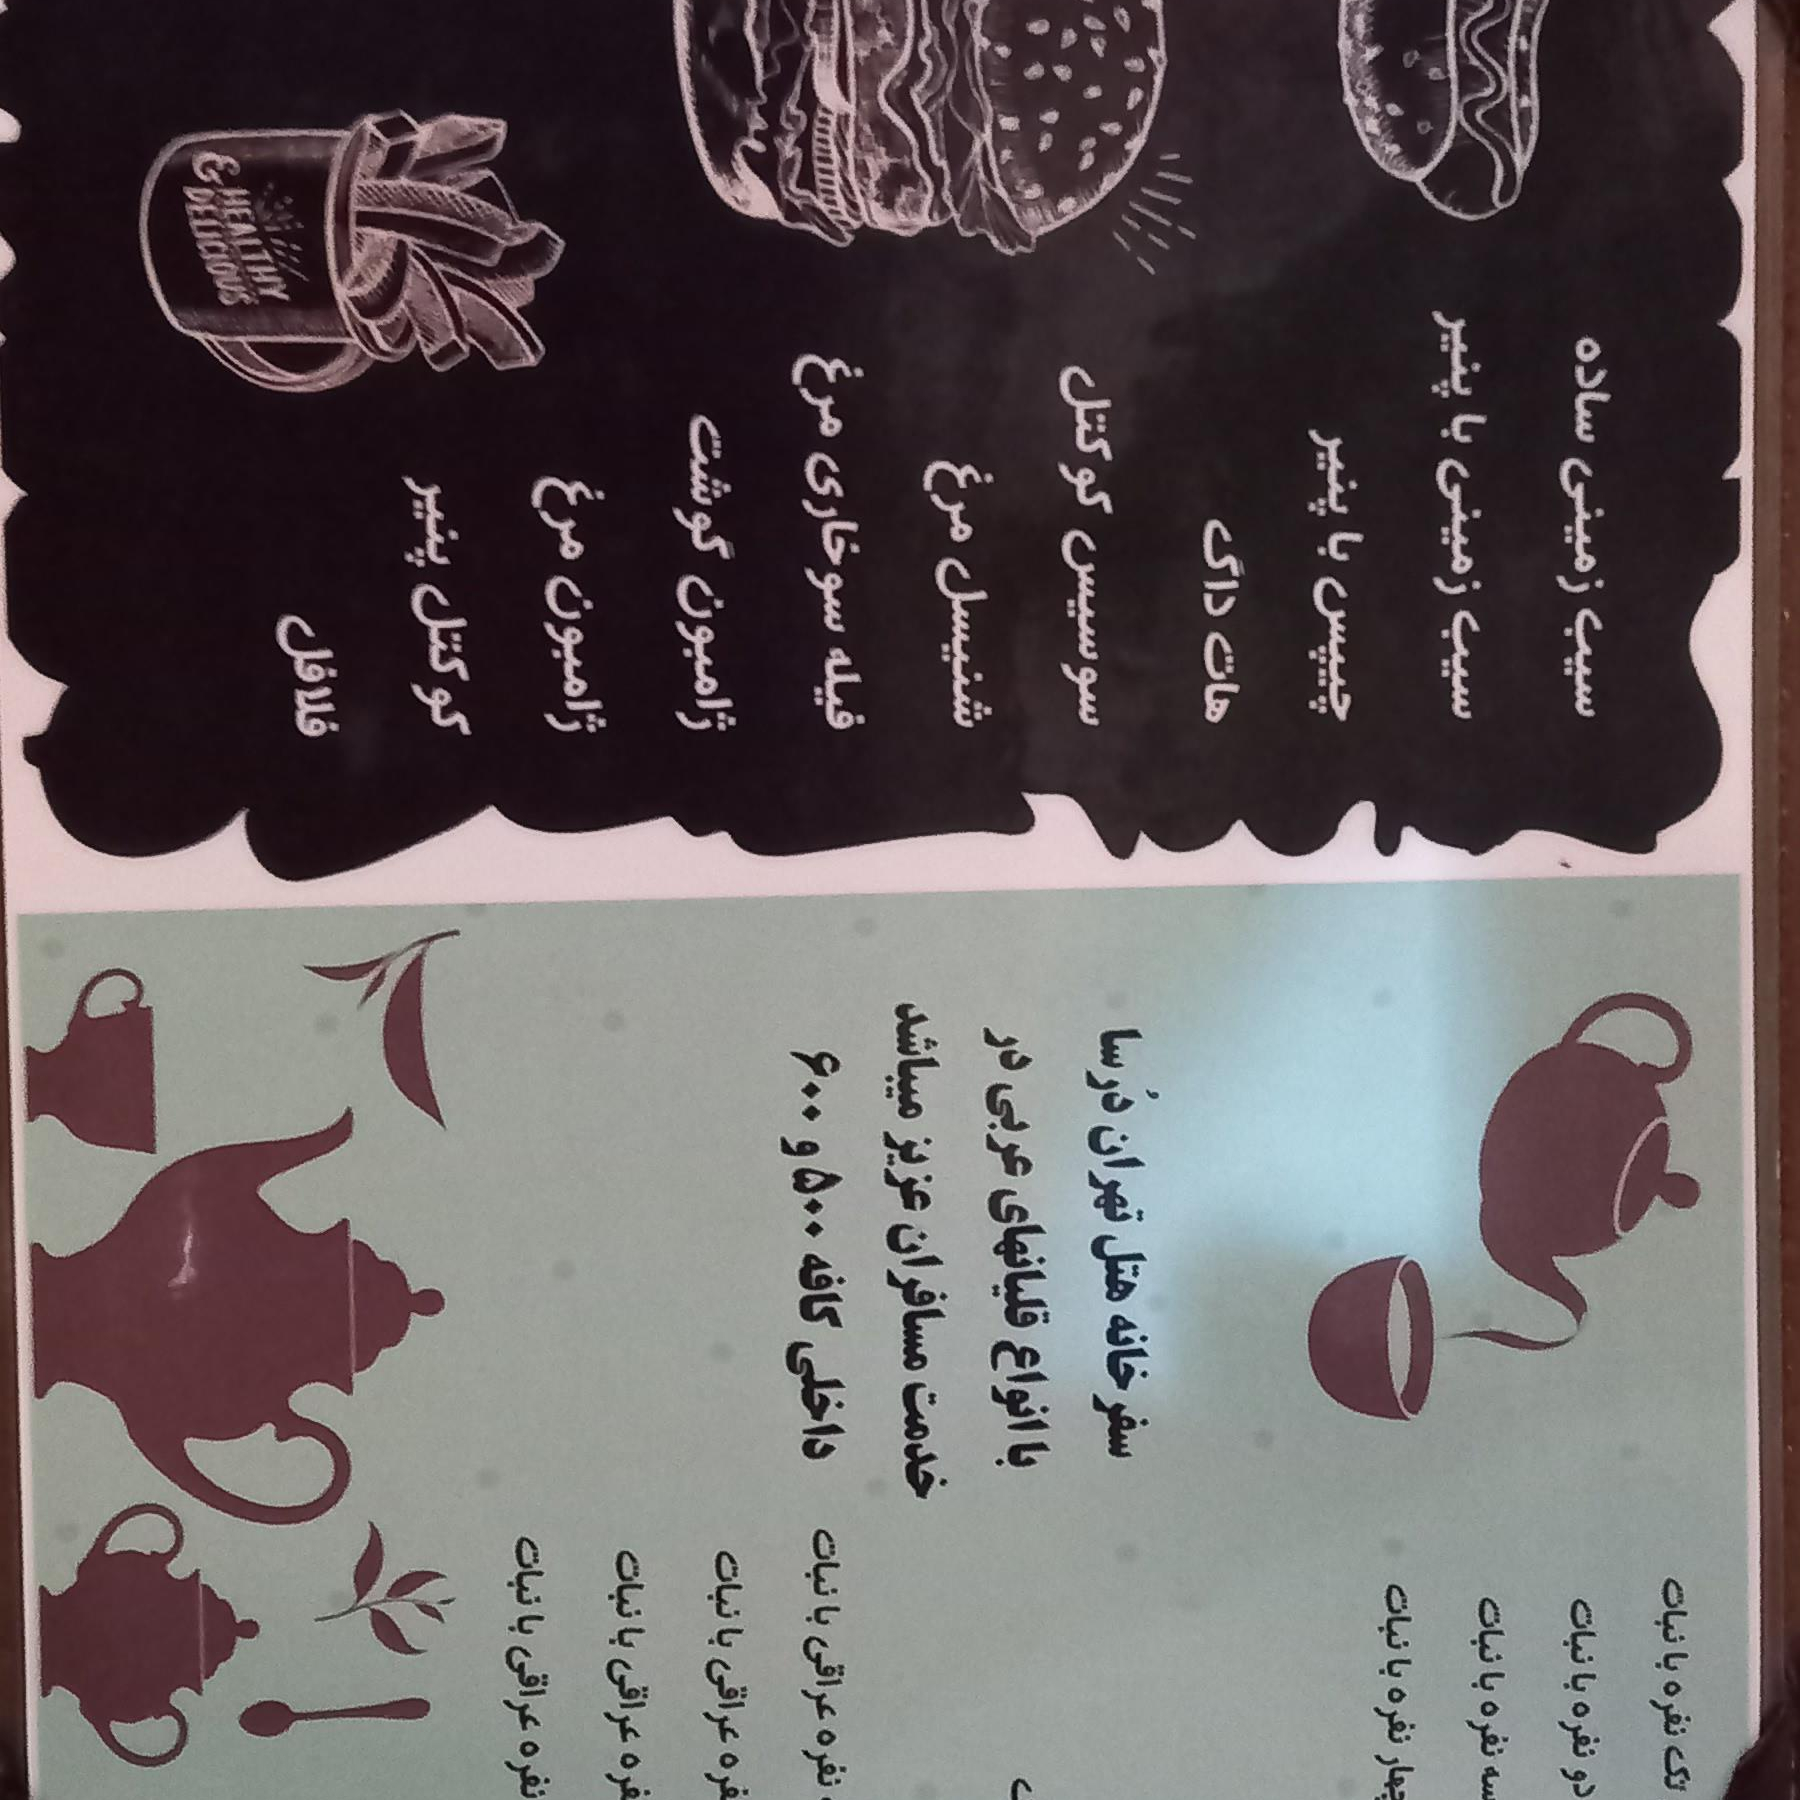 سیب زمینی ساده
سیب زمینی با پنیر
چیپس با پنیر
هات داگ
سوسیس کوکتل
شنیسل مرغ
فیله سوخاری مرغ
ژامبون گوشت
ژامبون مرغ
کوکتل پنیر
فلافل
HEALTHY
& DELICIOUS
سفر خانه هتل تهران دُرسا
با انواع قلیانهای عربی در
خدمت مسافران عزیز میباشد
داخلی کافه ۵۰۰ و ۶۰۰
تک نفره با نبات
دو نفره با نبات
سه نفره با نبات
چهار نفره با نبات
نفره عراقی با نبات
نفره عراقی با نبات
نفره عراقی با نبات
نفره عراقی با نبات